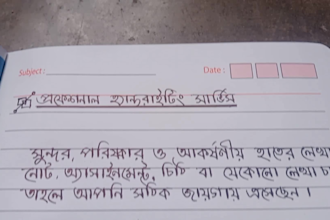 Subject:
Date :
প্রফেশনাল হ্যান্ডরাইটিং সার্ভিস
সুন্দর, পরিষ্কার ও আকর্ষণীয় হাতের লেখা
নোট, অ্যাসাইনমেন্ট, চিঠি বা যেকোনো লেখা
তাহলে আপনি সঠিক জায়গায় এসেছেন ।